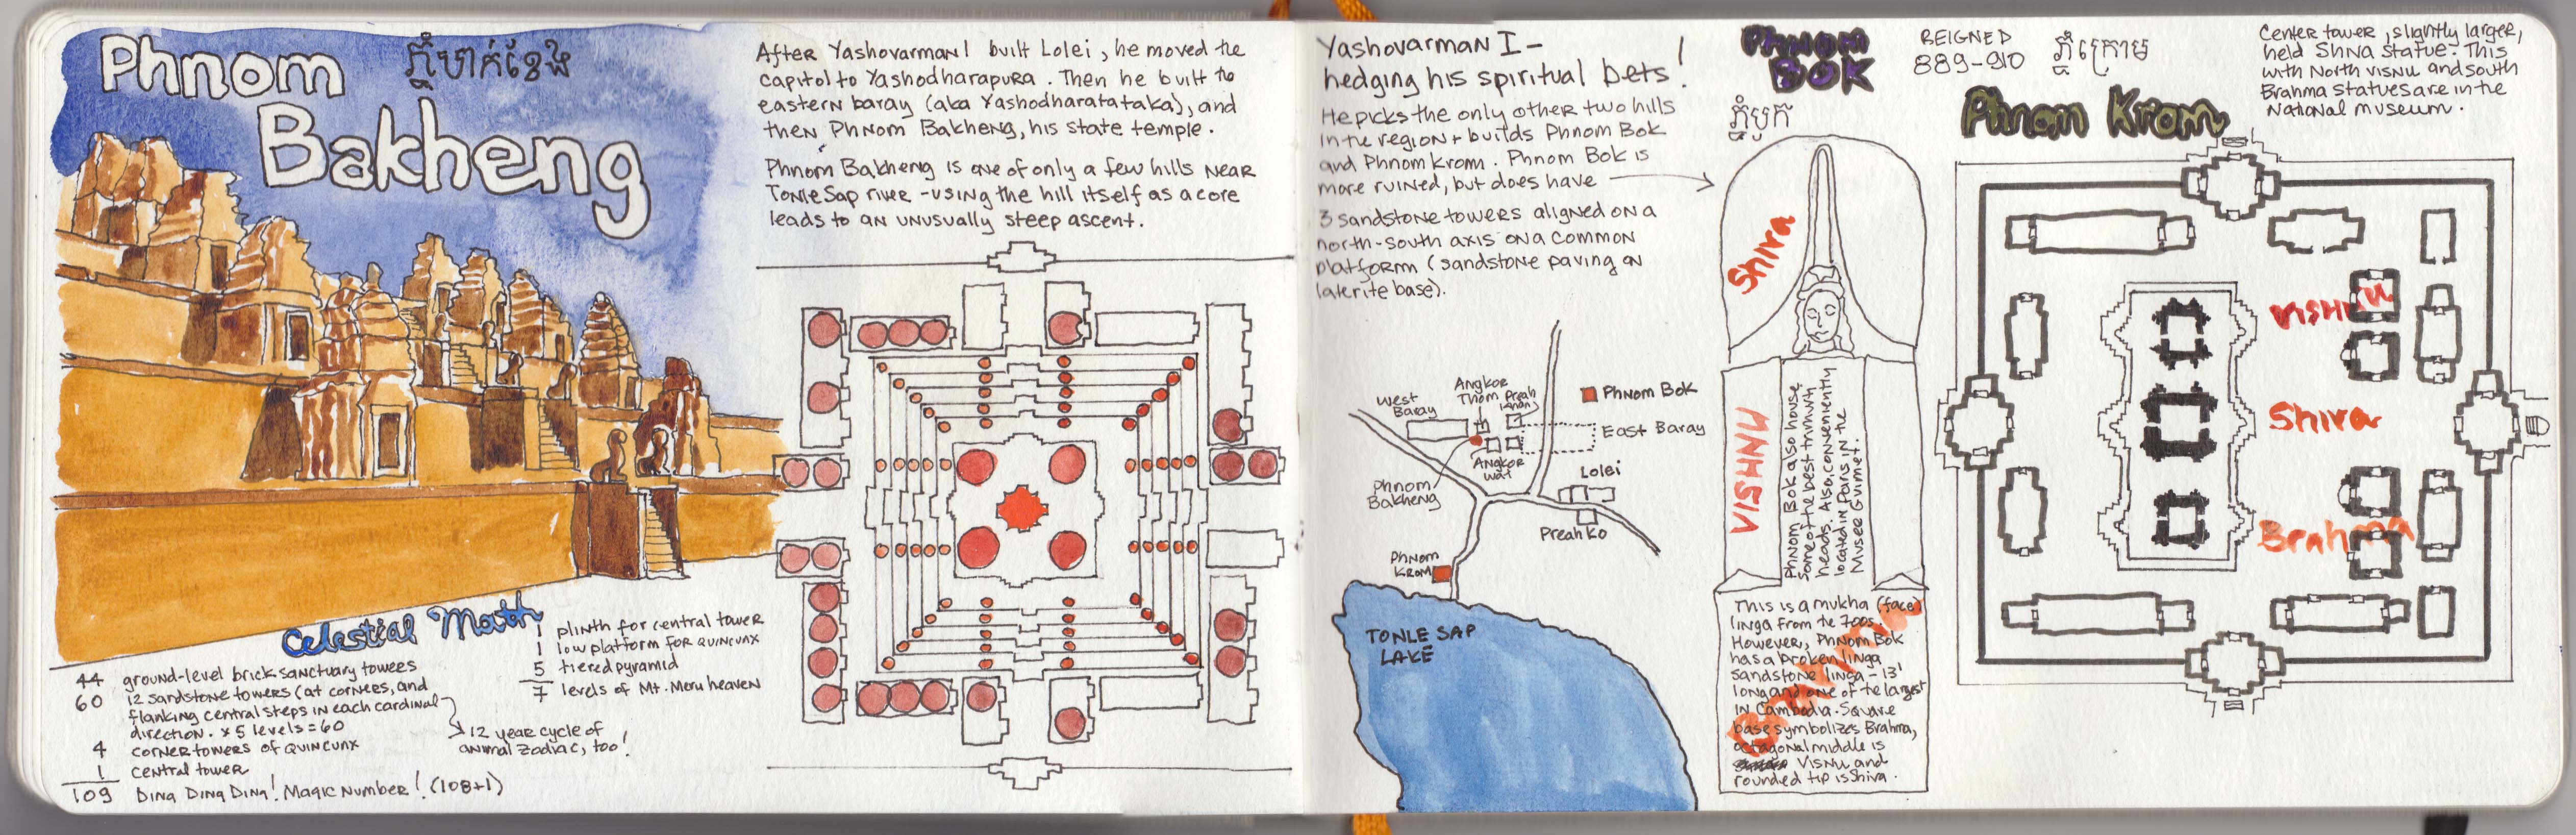 Phnom
ភ្នំបាក់ខែង
Bakheng
After Yashovarman I built Lolei, he moved the
capitol to Yashodharapura. Then he built the
eastern baray (aka Yashodharatataka), and
then Phnom Bakheng, his state temple.
Phnom Bakheng is one of only a few hills near
Tonle Sap river - using the hill itself as a core
leads to an unusually steep ascent.
Celestial Math
44 ground-level brick sanctuary towers
60 12 sandstone towers (at corners, and
flanking central steps in each cardinal
direction. x 5 levels = 60
4 corner towers of quincunx
1 central tower
109 Ding Ding Ding! Magic Number! (108+1)
12 year cycle of
animal zodiac, too!
1 plinth for central tower
1 low platform for quincunx
5 tiered pyramid
7 levels of Mt. Meru heaven
Yashovarman I -
hedging his spiritual bets!
He picks the only other two hills
in the region + builds Phnom Bok
and Phnom Krom. Phnom Bok is
more ruined, but does have
3 sandstone towers aligned on a
north-south axis on a common
platform (sandstone paving on
laterite base).
West
Baray
Angkor
Thom
Preah
Khan
Phnom Bok
East Baray
Angkor
Wat
Phnom
Bakheng
Lolei
Preah Ko
Phnom
Krom
TONLE SAP
LAKE
PHNOM
BOK
ភ្នំបូក
Shiva
VISHNU
Phnom Bok also house
some of the best trimurti
heads. Also, conveniently
located in Paris in the
Musee Guimet.
Brahma
This is a mukha (face)
linga from the 700s.
However, Phnom Bok
has a broken linga
sandstone linga - 13'
long and one of the largest
in Cambodia. Square
base symbolizes Brahma,
octagonal middle is
Visnu and
rounded tip is Shiva.
REIGNED
889-910
ភ្នំក្រោម
Phnom Krom
Center tower, slightly larger,
held Shiva statue. This
with North Visnu and south
Brahma statues are in the
National Museum.
Vishnu
Shiva
Brahma